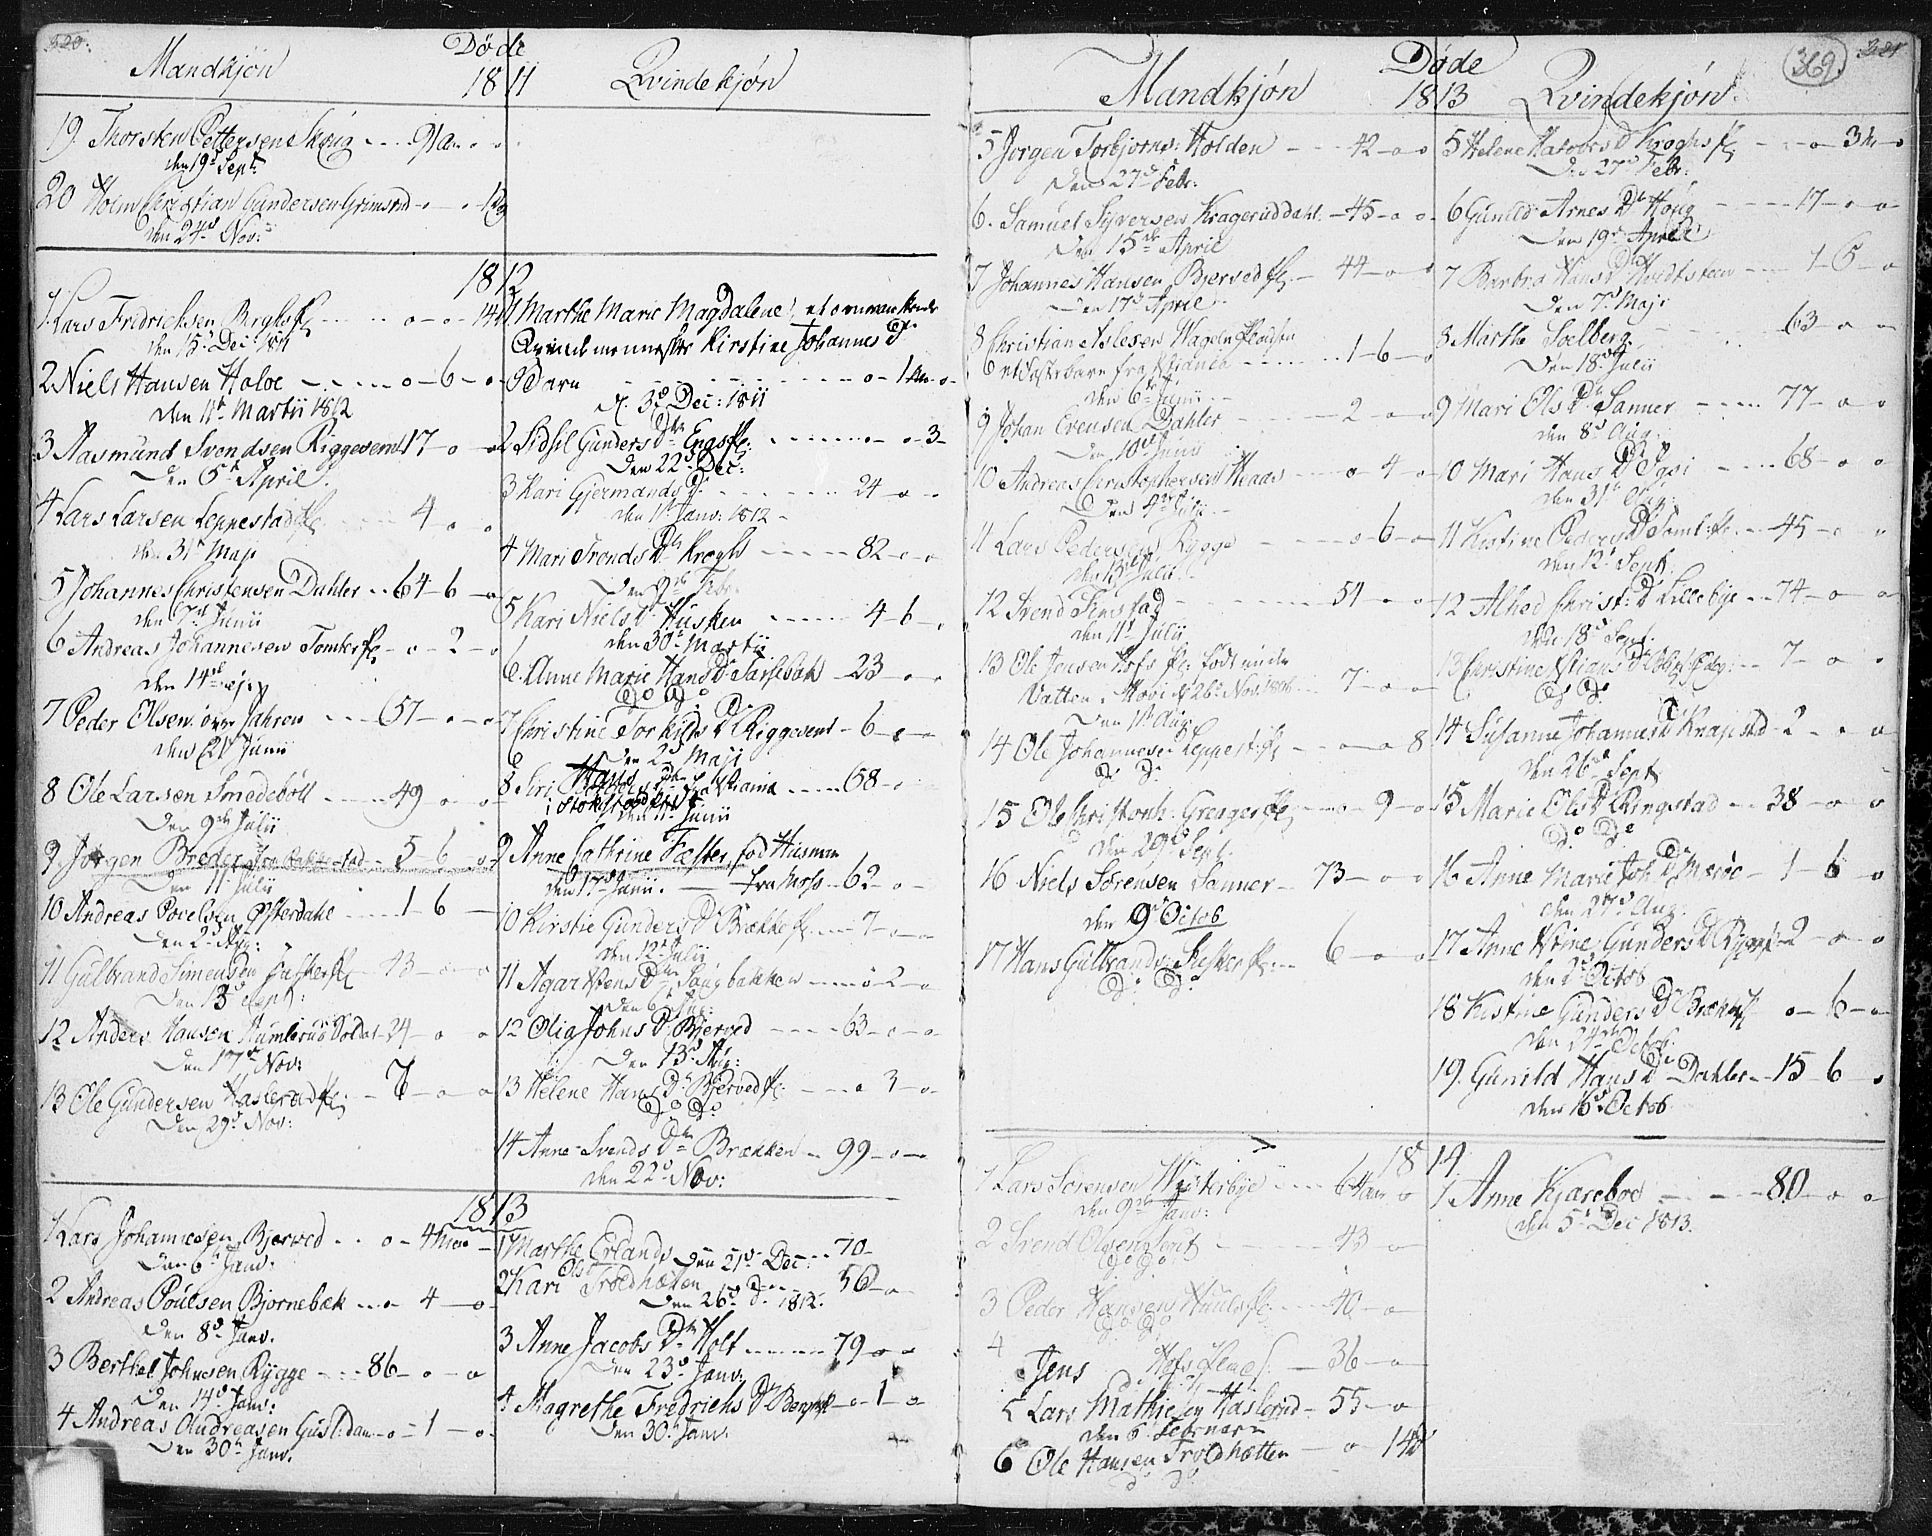 320.
Døde
Mandkjøn 1811 Qvindekjøn
19. Thorsten Pettersen Skoug - - - 91 a - o - o
den 19d Sept:
20 Holm Christian Gundersen Grimsrud - o - o -
den 24d Nov:
1812
1 Lars Fredrichsen Berghs fl - - - o - o - 14
den 15d Dec: 1811
2 Niels Hansen Holoe - - - o - 6 - o
den 11t Martii 1812
3 Aasmund Svendsen Riggesund 17 - o - o
Den 5t April.
4 Lars Larsen Leppestad fl - - - 4 - o - o
den 31t Maji
5 Johannes Christensen Dahler - - 64 - 6 - o
den 7d Junii
6 Andreas Johannesen Tomter fl - o - 2 - o
den 14de ejus
7 Peder Olsen øvre Jahren - - - 57 - o - o
dend 21t Junii
8 Ole Larsen Smedebøll - - - 49 - o - o
Den 9de Julii
9. Jørgen Breder - 5 - 6 - o
Den 11t Julii
10 Andreas Povelsen Østerdahl - - - 1 - 6 -
Den 2d Aug:
11 Gulbrand Simensen fl - 43 - o - o
Den 13d Sept:
12 Anders Hansen Humlerud Soldat - 24 - o - o
Den 17d Nov:
13 Ole Gundersen Haslerud fl - 7 - o - o
Den 29d Nov:
1 Marthe Marie Magdalene, et omvankende
Qvindemenneske Kirstine Johannes D
Barn - - - - o - 1 - o
d. 3d Dec: 1811
2 Sidsil Gunders Dtr Engs fl: - - - o - o - 3 -
Den 22d Dec:
3 Kari Gjermands D - - - 24 - o - o
den 1t Janv: 1812 -
4 Mari Tronds Dtr Krogh - - - 82 - o - o
Den 9de Febr.
5 Kari Niels D Husken - - - 4 - 6 - o
den 30t Martii
6. Anne Marie Hans D Sarsebak - 23 - o - o
do do
7 Christine Torkilds D Riggesund - 6 - o - o
Den 2d Maji
8 Siri - - - 58 - o
den 11t Junii
9 Anne Cathrine Fæster, fød Husman
den 17d Junii. - fra Moss - 62 - o -
10 Kirstie Gunders D Brække fl. - - - 7 - o - o
den 12t Julii
11 Agar Dtr Saugbakken - - - o - 2 - o
Den 6t Aug:
12 Olia Johns D Bjerved - - - 63 - o - o
Den 13d Aug:
13 Helene Hans D Bjerved fl: - - - o - 3 - o
do do
14 Anne Svends Dtr Brækken - 99 - o - o
den 22d Nov:
1813
1 Lars Johannesen Bjerved - - o - 4 -
Den 6t Janv:
2 Andreas Poulsen Bjørnebæk - - o - 4 - o -
Den 8d Janv.
3 Berthel Johnsen Rygge - - - 86 - o - o
Den 14d Janv:
4 Andreas Andreasen Gusl: dam - o - 1 - o
Den 30t Janv.
1 Marthe Erlands Den 21d Dec: - - 70 -
2 Kari Ols D Troldhæten - - - 56 - o
Den 26d D. 1812.
3 Anne Jacobs Dtr Holt - - - 79 - o - o
Den 23d Janv:
4 Magrethe Fredrichs D Berghs fl - o - 1 - o
Den 30t Janv:
369.
Døde
Mandkjøn 1813 Qvindekjøn
5 Jørgen Torbjørns: Holden - - - 42 - o - o
Den 27d Febr.
6. Samuel Syversen Kragerud dahl. - 45 - o - o
Den 15de April
7 Johannes Hansen Bjerved fl - 44 - o - o
Den 17d April
8 Christian Aslesen
et Fosterbarn fra Xtiania - - - 1 - 6 - o
den 6t Junii
9 Johan Evensen Dahler - - - 2 - o - o
Den 10d Junii
10 Andreas Christophersen Haas - - o - 4 - o
Den 4de Julii
11 Lars Pedersen Rygge - - - o - 6 - o
den 13d Julii.
12 Svend Sinstad - - - 51 - o - o
den 11t Julii
13 Ole Jensen Hofs fl: født under
Vatten i d 26d Nov. 1806 - - 7 - o - o
Den 1t Aug
14 Ole Johannesen Leppest: fl - - - o - o 8
do do
15 Ole Christoph: Grenger fl - - o - 9 - o
den 29d Sept.
16 Niels Sörensen Sanner - 73 - o - o
den 9d Octob
17 Hans Gulbrands: fl: - - 6 - o - o
do do
5 Helene Halvors D Kroghs fl - - - o - 3 - o
D: 27d Febr:
6 Gunild Arnes Dtr Houg - - - 17 - o - o
Den 19d April
7 Barbra Hans D Hvidtsteen - - - 1 - 5 - o
Den 7d Maji
8 Marthe Soelberg - - - 63 - o - o
Den 18d Julii
9 Mari Ols D Sanner - - - 77 - o - o
den 8d Aug
10 Mari Hans D - - - 68 - o - o
den 31t Aug:
11 Kirstine Peders D Tomt: fl: - - 45 - o - o
den 12t Sept.
12 Alhed Christ: D Lillebye - - 74 - o - o
den 18d Sept.
13 Christine Xtians D - - 7 - o - o
do do
14 Susanne Johannes D Knapstad - 2 - o - o
den 26d Sept
15 Marie Ols D Ringstad - - 38 - o - o
do do
16 Anne Marie Joh: D Mosoe - 1 - 6 - o
den 27d Aug:
17 Anne Stine Gunders D Rygge - 2 - o - o
den 2d Octob
18 Kistine Gunders D Brække fl o - 6 - o
den 24de Octob.
19. Gunild Hans D Dahler - - 15 - 6 - o
den 16d Octob.
1814.
1 Lars Sörensen Westerbye - - - 6
den 9de Janv:
2 Svend Olsen - - - 43 - o
do do
3 Peder Hansen fl: - - - 40 - o
do do
4
Jens Hofs - 36 - o
5 Lars Mathiesen Haslerud - 55 - o
den 6 Februari
6 Ole Hansen Troldhætten - - o - 14
do do
1 Anne Kjæreboe - - - 80 - o - o
den 5t Dec 1813.